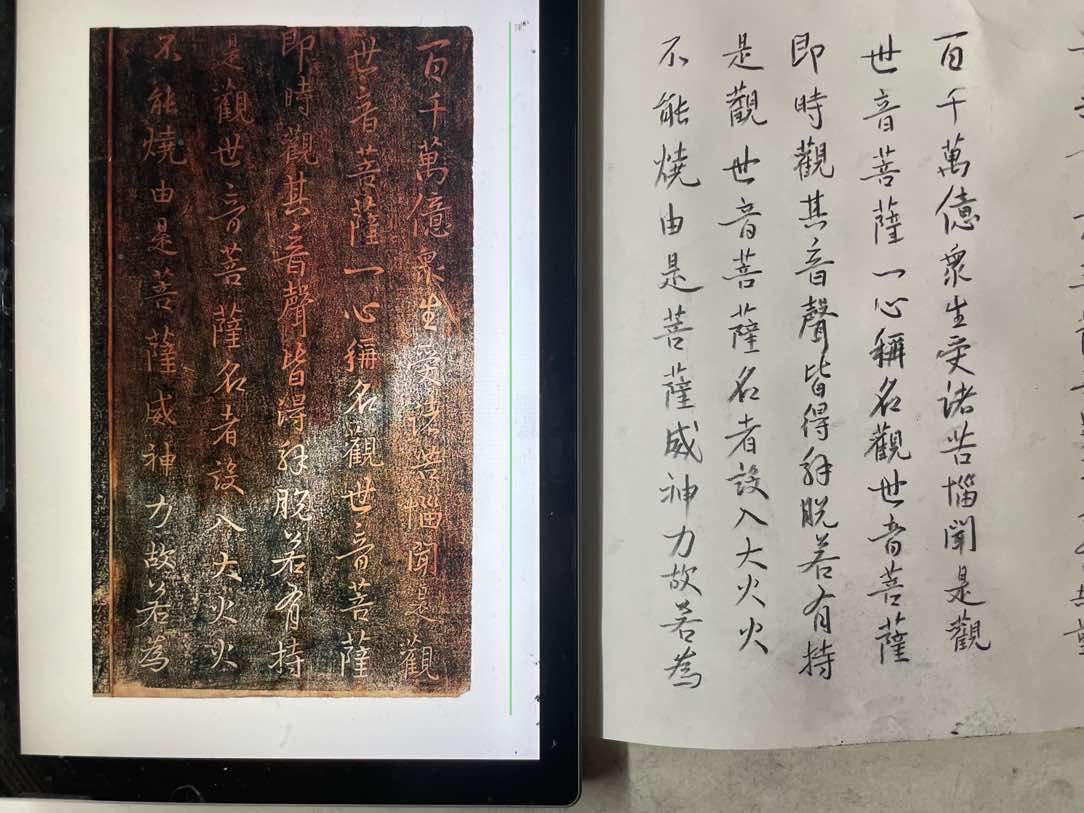 百千萬億衆生受諸苦惱聞是觀
世音菩薩一心稱名觀世音菩薩
即時觀其音聲皆得解脫若有持
是觀世音菩薩名者設入大火火
不能燒由是菩薩威神力故若為
百千萬億衆生受諸苦惱聞是觀
世音菩薩一心稱名觀世音菩薩
即時觀其音聲皆得解脫若有持
是觀世音菩薩名者設入大火火
不能燒由是菩薩威神力故若為